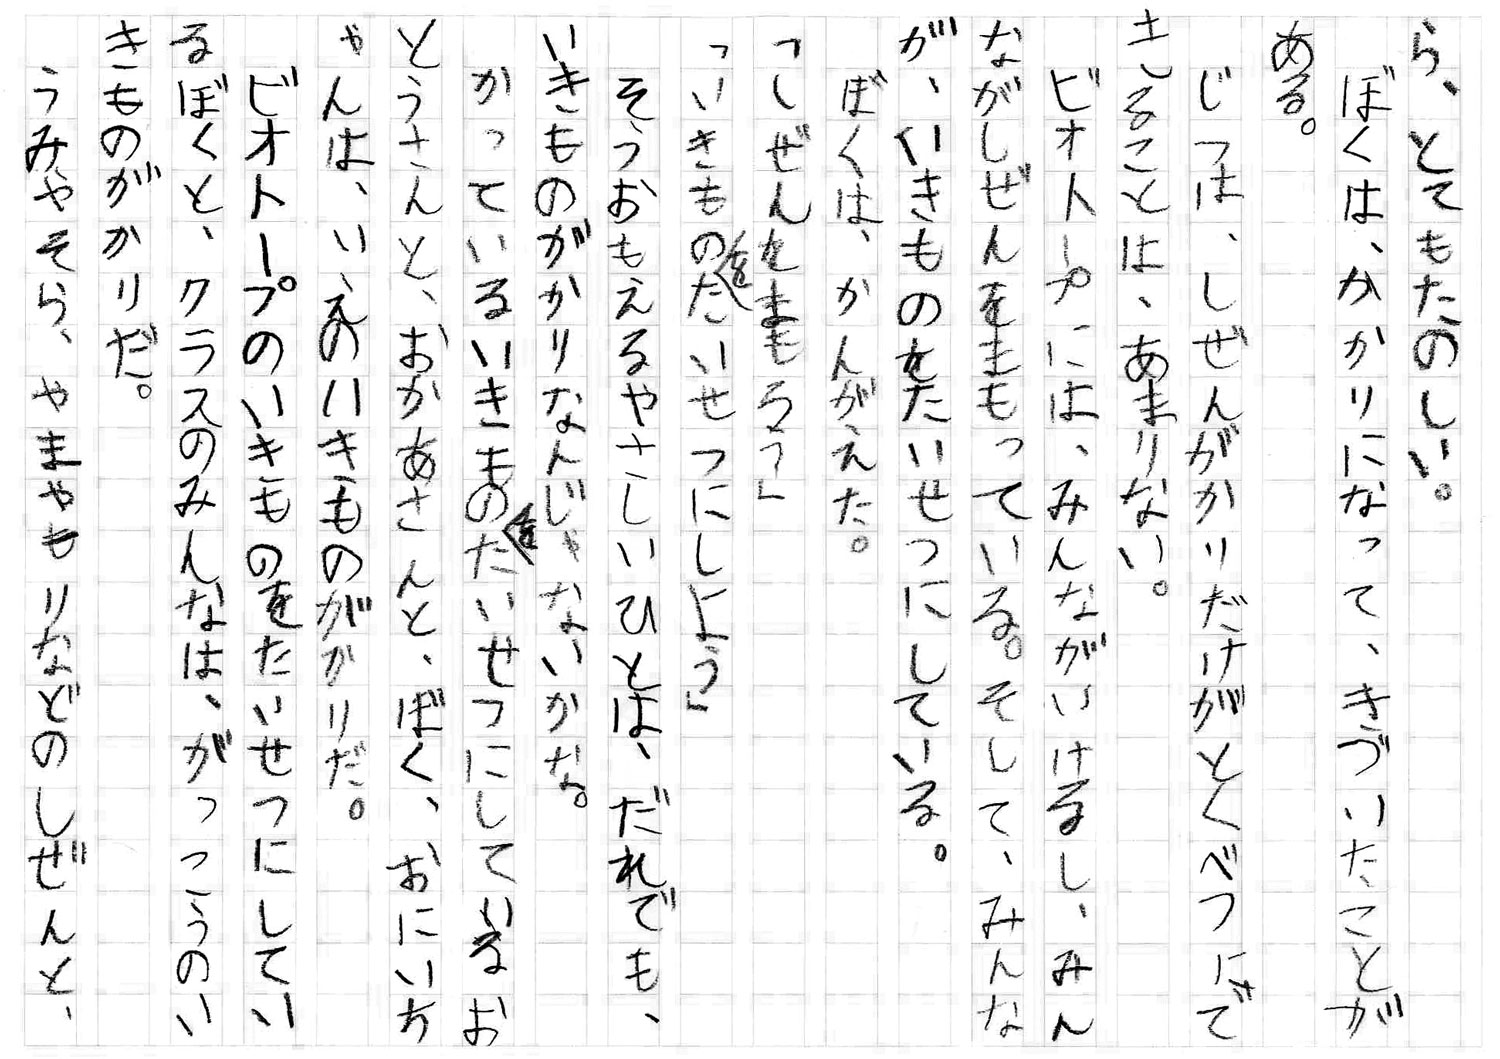 ら、とてもたのしい。
ぼくは、かかりになって、きづいたことが
ある。
じつは、しぜんがかりだけがとくべつにで
きることは、あまりない。
ビオトープには、みんながいけるし、みん
ながしぜんをまもっている。そして、みんな
が、いきものをたいせつにしている。
ぼくは、かんがえた。
「しぜんをまもろう」
「いきものをたいせつにしよう」
そうおもえるやさしいひとは、だれでも、
いきものがかりなんじゃないかな。
かっているいきものをたいせつにしているお
とうさんと、おかあさんと、ぼく、おにいち
ゃんは、いえのいきものがかりだ。
ビオトープのいきものをたいせつにしてい
るぼくと、クラスのみんなは、がっこうのい
きものがかりだ。
うみやそら、やまやもりなどのしぜんと、